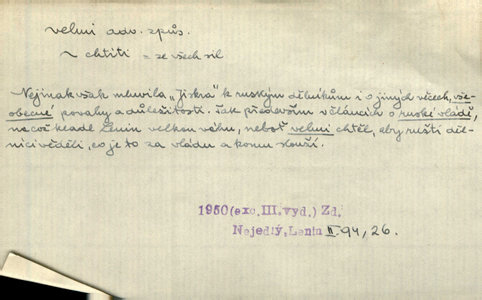 velmi adv. způs.
~ chtíti = ze všech sil
Nejinak však mluvila „Jiskra“ k ruským dělníkům i o jiných věcech, vše-
obecné povahy a důležitosti. Tak především v článcích o ruské vládě,
na což klade Lenin velkou váhu, neboť velmi chtěl, aby ruští děl-
níci věděli, co je to za vládu a komu slouží.
1950 (exc. III. vyd.) Zd.
Nejedlý, Lenin II. 94, 26.